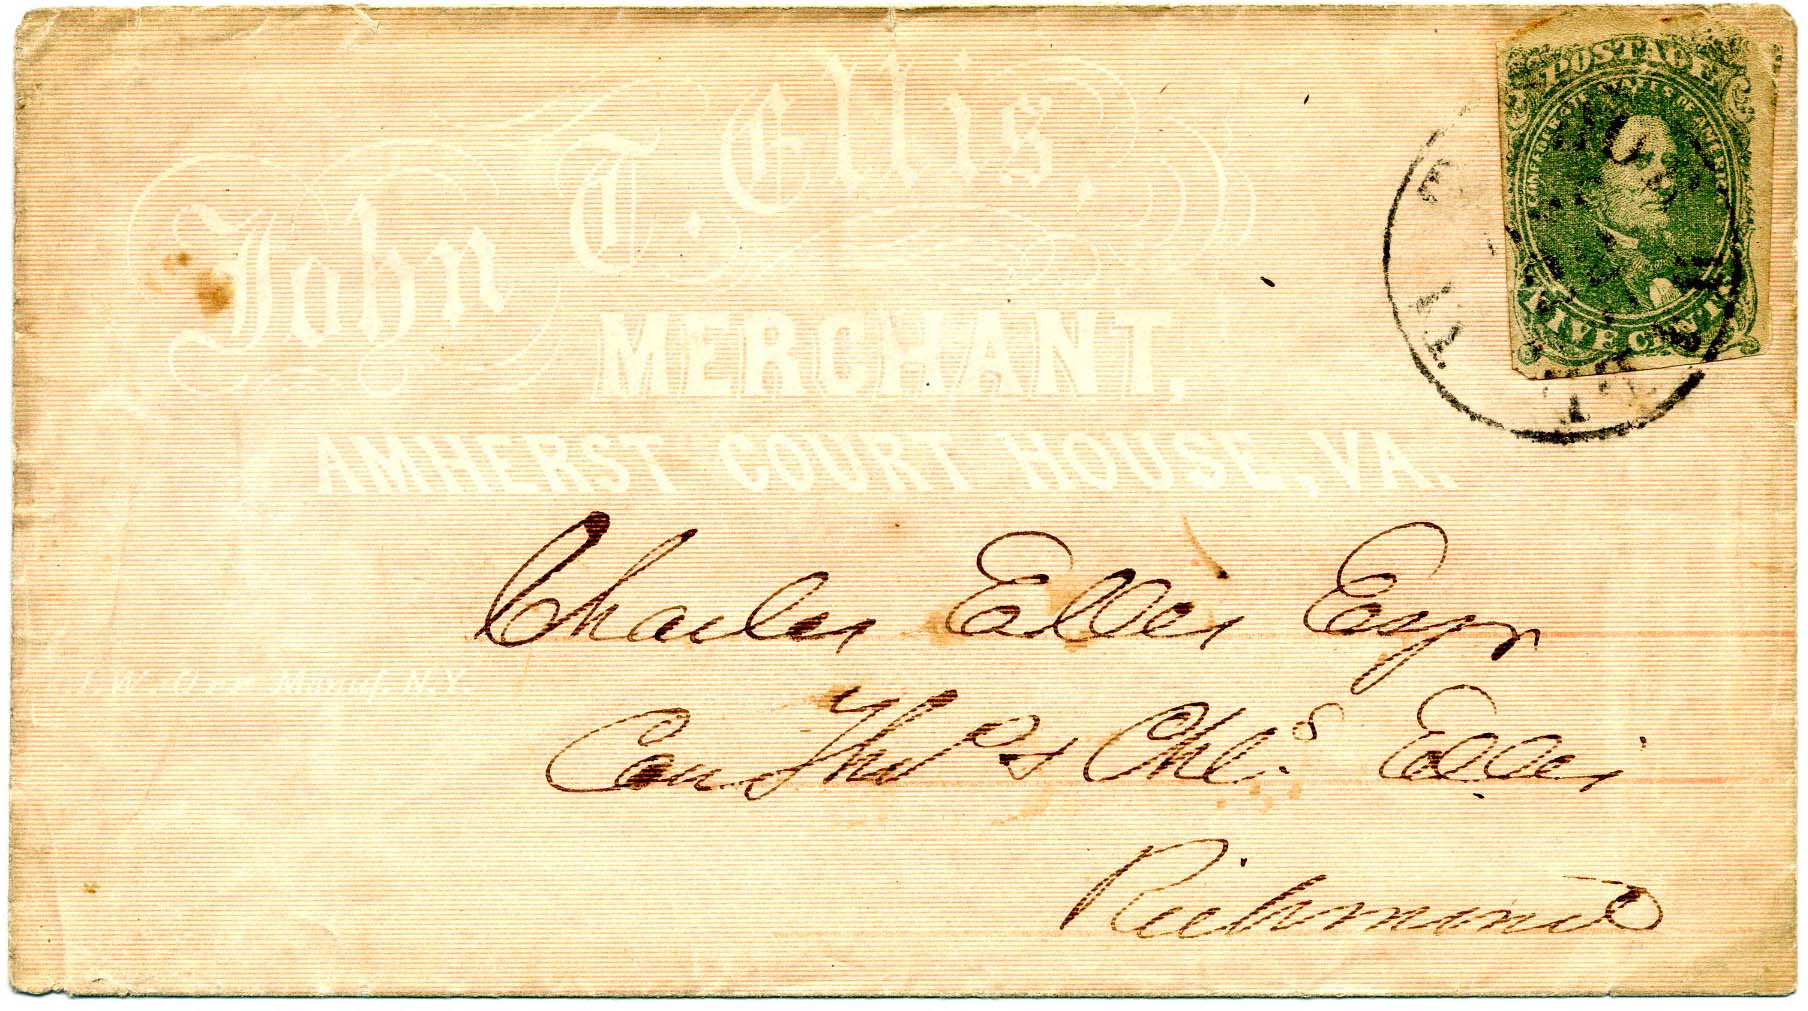 John T. Ellis,
MERCHANT,
AMHERST COURT HOUSE, VA.
POSTAGE
CONFEDERATE STATES OF AMERICA
FIVE CENTS
Charles Ellis Esqr
Thos & Chls. Ellis
Richmond
Manuf. N.Y.